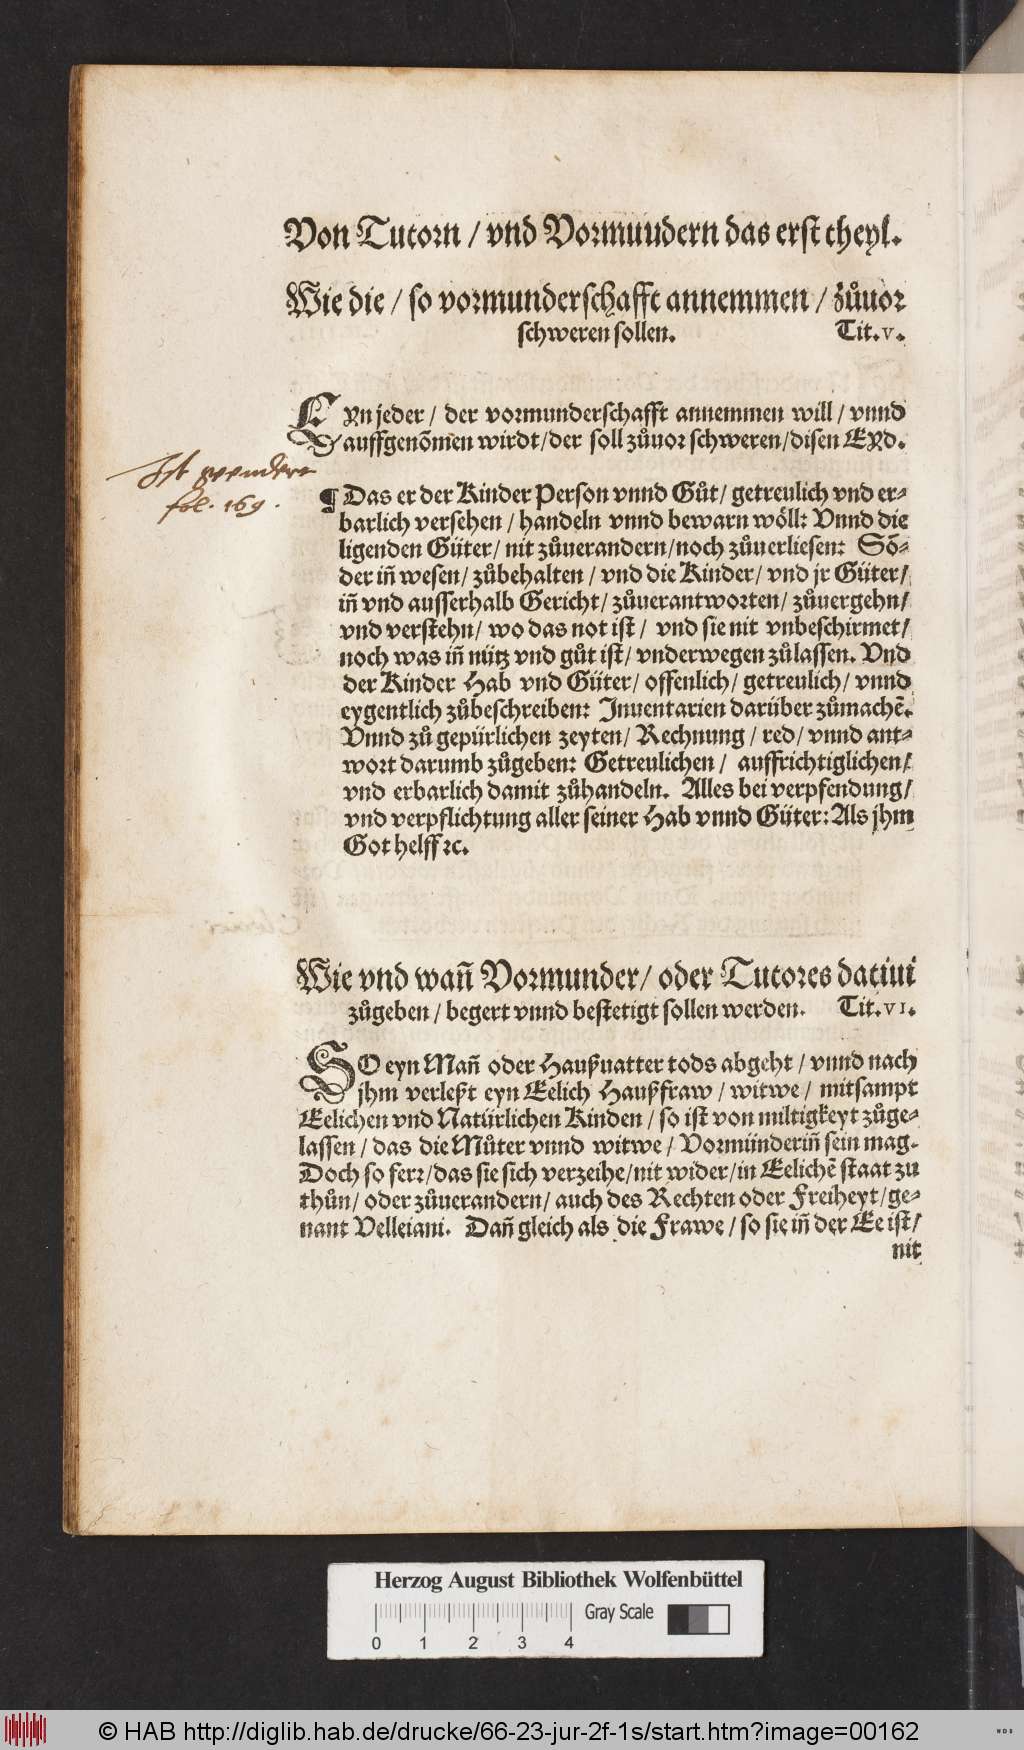 Von Tutorn / vnd Vormuudern das erst theyl.
Wie die / so vormunderschafft annemmen / zůuor
schweren sollen. Tit. v.
EYn jeder / der vormunderschafft annemmen will / vnnd
auffgenōmen wirdt / der soll zůuor schweren / disen EYd.
fol. 169.
¶ Das er der Kinder Person vnnd Gůt / getreulich vnd er⸗
barlich versehen / handeln vnnd bewarn wöll: Vnnd die
ligenden Güter / nit zůuerandern / noch zůuerliesen: Sō⸗
der iñ wesen / zůbehalten / vnd die Kinder / vnd jr Güter /
iñ vnd ausserhalb Gericht / zůuerantworten / zůuergehn /
vnd verstehn / wo das not ist / vnd sie nit vnbeschirmet /
noch was iñ nütz vnd gůt ist / vnderwegen zůlassen. Vnd
der Kinder Hab vnd Güter / offenlich / getreulich / vnnd
eygentlich zůbeschreiben: Inuentarien darüber zůmachē.
Vnnd zů gepürlichen zeyten / Rechnung / red / vnnd ant⸗
wort darumb zůgeben: Getreulichen / auffrichtiglichen /
vnd erbarlich damit zůhandeln. Alles bei verpfendung /
vnd verpflichtung aller seiner Hab vnnd Güter: Als jhm
Got helff ꝛc.
Wie vnd wañ Vormunder / oder Tutores datiui
zůgeben / begert vnnd bestetigt sollen werden. Tit. VI.
SO eyn Mañ oder Haußuatter tods abgeht / vnnd nach
jhm verleßt eyn Eelich Haußfraw / witwe / mitsampt
Eelichen vnd Natürlichen Kinden / so ist von miltigkeyt zůge⸗
lassen / das die Můter vnnd witwe / Vormünderiñ sein mag.
Doch so ferr / das sie sich verzeihe / nit wider / in Eelichē staat zu
thůn / oder zůuerandern / auch des Rechten oder Freiheyt / ge⸗
nant Velleiani. Dañ gleich als die Frawe / so sie iñ der Ee ist /
nit
Herzog August Bibliothek Wolfenbüttel
Gray Scale
0 1 2 3 4
© HAB http://diglib.hab.de/drucke/66-23-jur-2f-1s/start.htm?image=00162